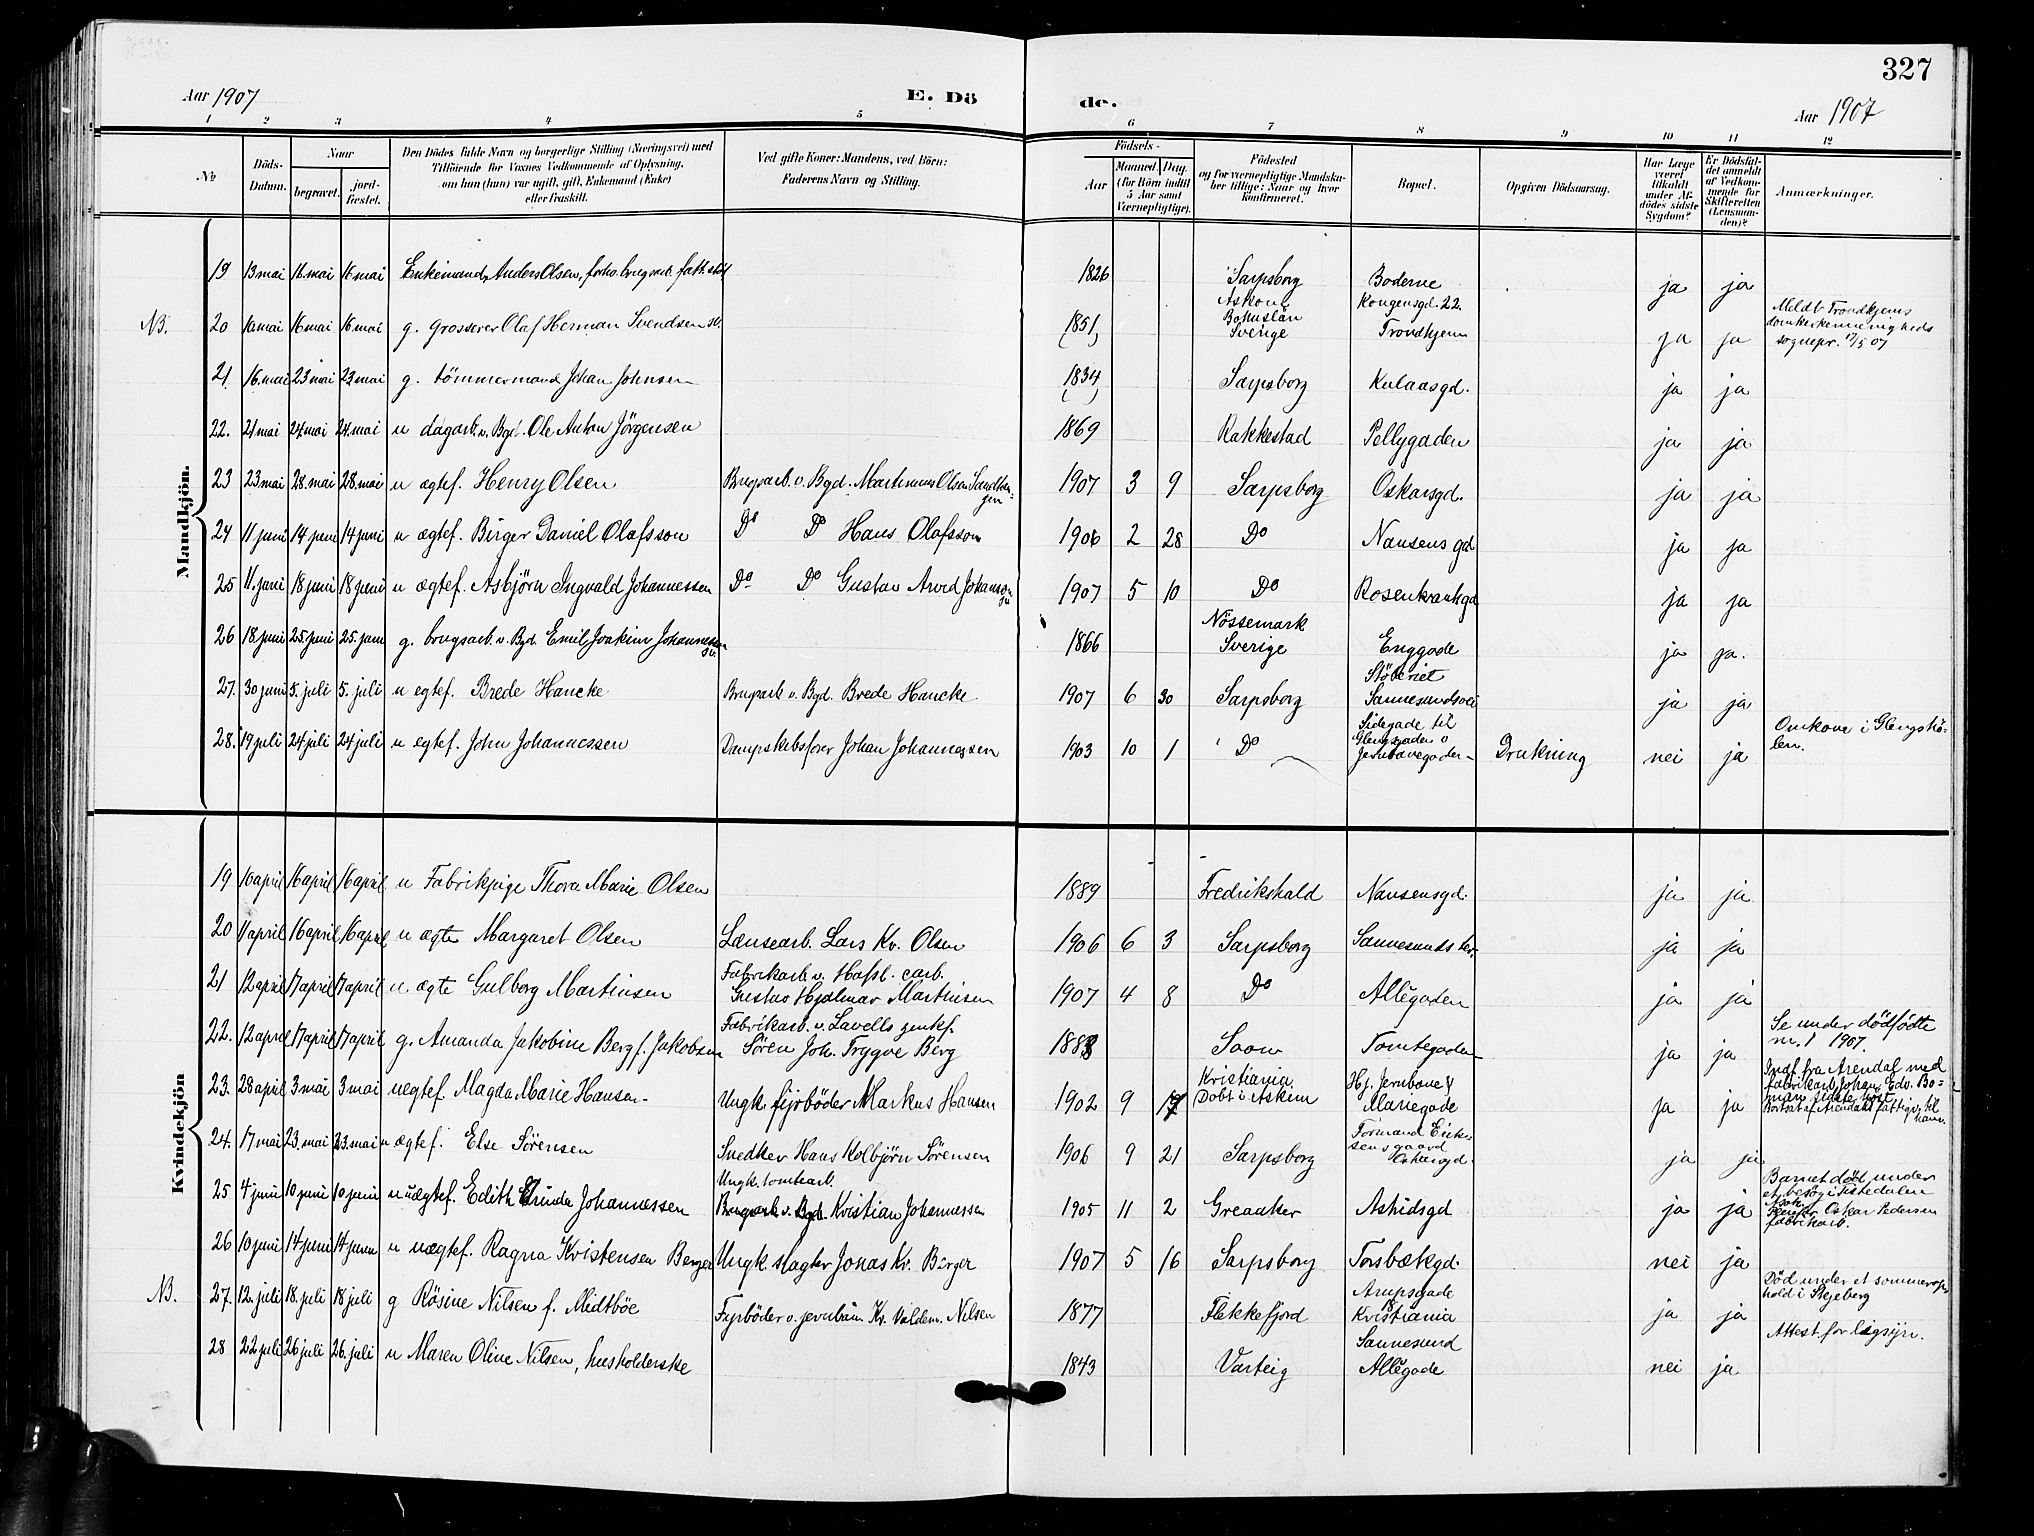 327
Aar 1907
E. Dö
de.
Aar 1907
1 2 3 4 5 6 7 8 9 10 11 12
No
Döds-Datum.
Naar
begravet.
jord-fæstet.
Den Dödes fulde Navn og borgerlige Stilling (Næringsvei) med
Tilföiende for Voxnes Vedkommende af Oplysning,
om hun (hun) var ugift, gift, Enkemand (Enke)
eller fraskilt.
Ved gifte Koner: Mandens, ved Börn:
Faderens Navn og Stilling.
Födsels-
Aar
Maaned. Dag.
(for Börn indtil
5 Aar samt
Værnepligtige).
Födested
og for værnepligtige Mandska-
ber tillige: Naar og hvor
konfirmeret.
Bopæl.
Opgiven Dödsaarsag.
Har Læge
været
tilkaldt
under Af-
dödes sidste
Sygdom?
Er Dödsfal-
det anmeldt
af Vedkom-
mende for
Skifteretten
(Lensman-
den)?
Anmærkninger.
Mandkjön.
19 13 mai 16. mai 16. mai Enkemand, Anders Olsen, forhv. brugsarb. fatt. 1826 Sarpsborg Boderne ja ja
NB. 20 10 mai 16 mai 16. mai g. grosserer Olaf Herman Svendsen 1851 Askom Bohuslän Sverige Kongensgd. 22. Trondhjem ja ja Meldt Trondhjems
domkirkemenigheds
sognepr. 11/5 07
21. 16. mai 23 mai 23 mai g. tömmermand Johan Johnsen 1834 Sarpsborg Kulaasgd. ja ja
22. 21 mai 24 mai 24. mai u dagarb. v. Bgd. Ole Anton Jörgensen 1869 Rakkestad Pellygaden ja ja
23 23 mai 28. mai 28. mai u ægtef. Henry Olsen Brugsarb. v. Bgd. Martinius Olsen 1907 3 9 Sarpsborg Oskarsgd. ja ja
24 11 juni 14 juni 14 juni u ægtef. Birger Daniel Olafsson Do Do Hans Olafsson 1906 2 28 Do Nansens gd ja ja
25 11. juni 18 juni 18 juni u ægtef. Asbjörn Ingvald Johannessen Do Do Gustav Arvid Johanson 1907 5 10 Do Rosenkrantzgd ja ja
26 18 juni 25. juni 25. juni g. brugsarb. v. Bgd. Emil Joakim Johannessen 1866 Nössemark Sverige Enggade ja ja.
27. 30 juni 5. juli 5. juli u egtef. Brede Hancke Brugsarb v. Bgd. Brede Hancke 1907 6 30 Sarpsborg Stöberiet Sannesundsvei ja ja
28. 19 juli 24 juli 24 juli u egtef. John Johannessen Dampskibsförer Johan Johannessen 1903 10 1 Do Sidegade til
Glengsgaden v
Jernbanegaden Drukning nei ja Omkom i Glengshö-
len.
Kvindekjön
19 10 april 16 april 16 april u Fabrikpige Thora Marie Olsen 1889 Fredrikshald Nansensgd. ja ja
20 11 april 16 april 16 april u ægte Margaret Olsen Lænsearb. Lars Kr. Olsen 1906 6 3 Sarpsborg Sannesunds ja ja
21 12 april 17 april 17 april u ægte Gulborg Martinsen Fabrikarb v. Hafsl. carb.
Gustav Hjalmar Martinsen 1907 4 8 Do Allégaden ja ja
22. 12 april 17 april 17 april g. Amanda Jakobine Berg f. Jakobsen Fabrikarb. v. Lavells
Sören Joh. Trygve Berg 1883 Soon Tomtegaden ja ja Se under dödfödte
nr. 1 1907.
23. 28 april 3 mai 3 mai uegtef. Magda Marie Hansen Ungk. fyrböder Markus Hansen 1902 9 17 Kristiania
Döbt i Askim Hj. Jernbane &
Mariegade ja ja Indf. fra Arendal med
fabrikarb. Johan Edv. Bo-
man sidste höst
Bortsat af Arendals fattigv. til
ham.
24. 17 mai 23. mai 23. mai u ægtef. Else Sörensen Snedker Hans Kolbjörn Sörensen 1906 9 21 Sarpsborg Formand Erik-
sens gaard
Oskarsgd. ja ja
25 4 juni 10 juni 10 juni u uægtef. Edith Johannessen Ungk. tomtearb.
Brugsarb v. Bgd. Kristian Johannessen 1905 11 2 Greaaker Astridsgd ja ja Barnet död under
et besög i Tistedalen
Oskar Pedersen
fabrikarb.
26 10 juni 14 juni 14 juni u uægtef. Ragna Kristensen Berger Ungk. slagter Jonas Kr. Berger 1907 5 16 Sarpsborg Torsbækgd. nei ja
NB. 27. 12. juli 18. juli 18 juli g Rösine Nilsen f. Midtböe Fyrböder v. jernban. Kr. Valdem. Nilsen 1877 Flekkefjord Arupsgade
18
Kristiania ja ja Död under et sommerop-
hold i Skjeberg
28 22 juli 26 juli 26. juli u Maren Oline Nilsen, husholderske 1843 Varteig Sannesund
Allégade nei ja Attest for ligsyn.